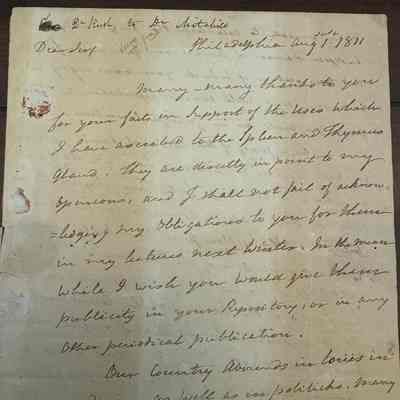 Dr Rush, to Dr Mitchill
Dear Sir, Philadelphia Augt 1st 1811
Many - many thanks to you
for your facts in support of the Uses which
I have ascribed to the Spleen and Thymus
Gland. They are directly in point to my
Opinions, and I shall not fail of acknow-
=ledging my Obligations to you for them
in my lectures next Winter. In the mean
while I wish you would give them
publicity in your Repository, or in any
Other periodical publication.
Our Country Abounds in tories in
as well as in politicks. Many